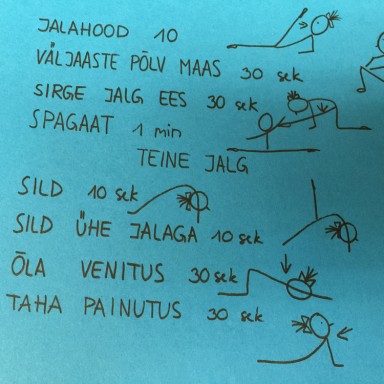 JALAHOOD 10
VÄLJAASTE PÕLV MAAS 30 sek
SIRGE JALG EES 30 sek
SPAGAAT 1 min
TEINE JALG
SILD 10 sek
SILD ÜHE JALAGA 10 sek
ÕLA VENITUS 30 sek
TAHA PAINUTUS 30 sek